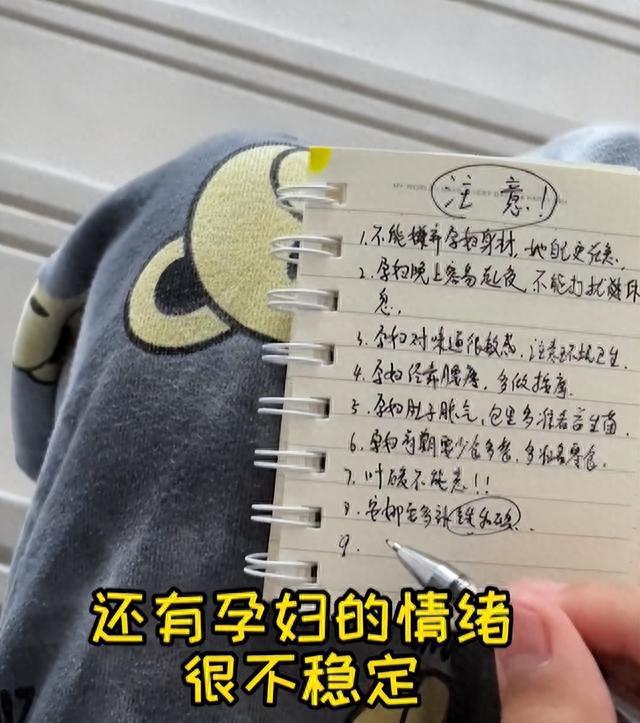 注意！
1.不能嫌弃孕妇身材，她自己更在意，
2.孕妇晚上容易起夜，不能打扰休
息，
3.孕妇对味道很敏感，注意环境卫生．
4.孕妇经常腰疼，多做按摩．
5.孕妇肚子胀气，包里多准备益生菌．
6.孕妇前期要少食多餐，多准备零食．
7.叶酸不能忘！！
8.安娜
9.
还有孕妇的情绪
很不稳定